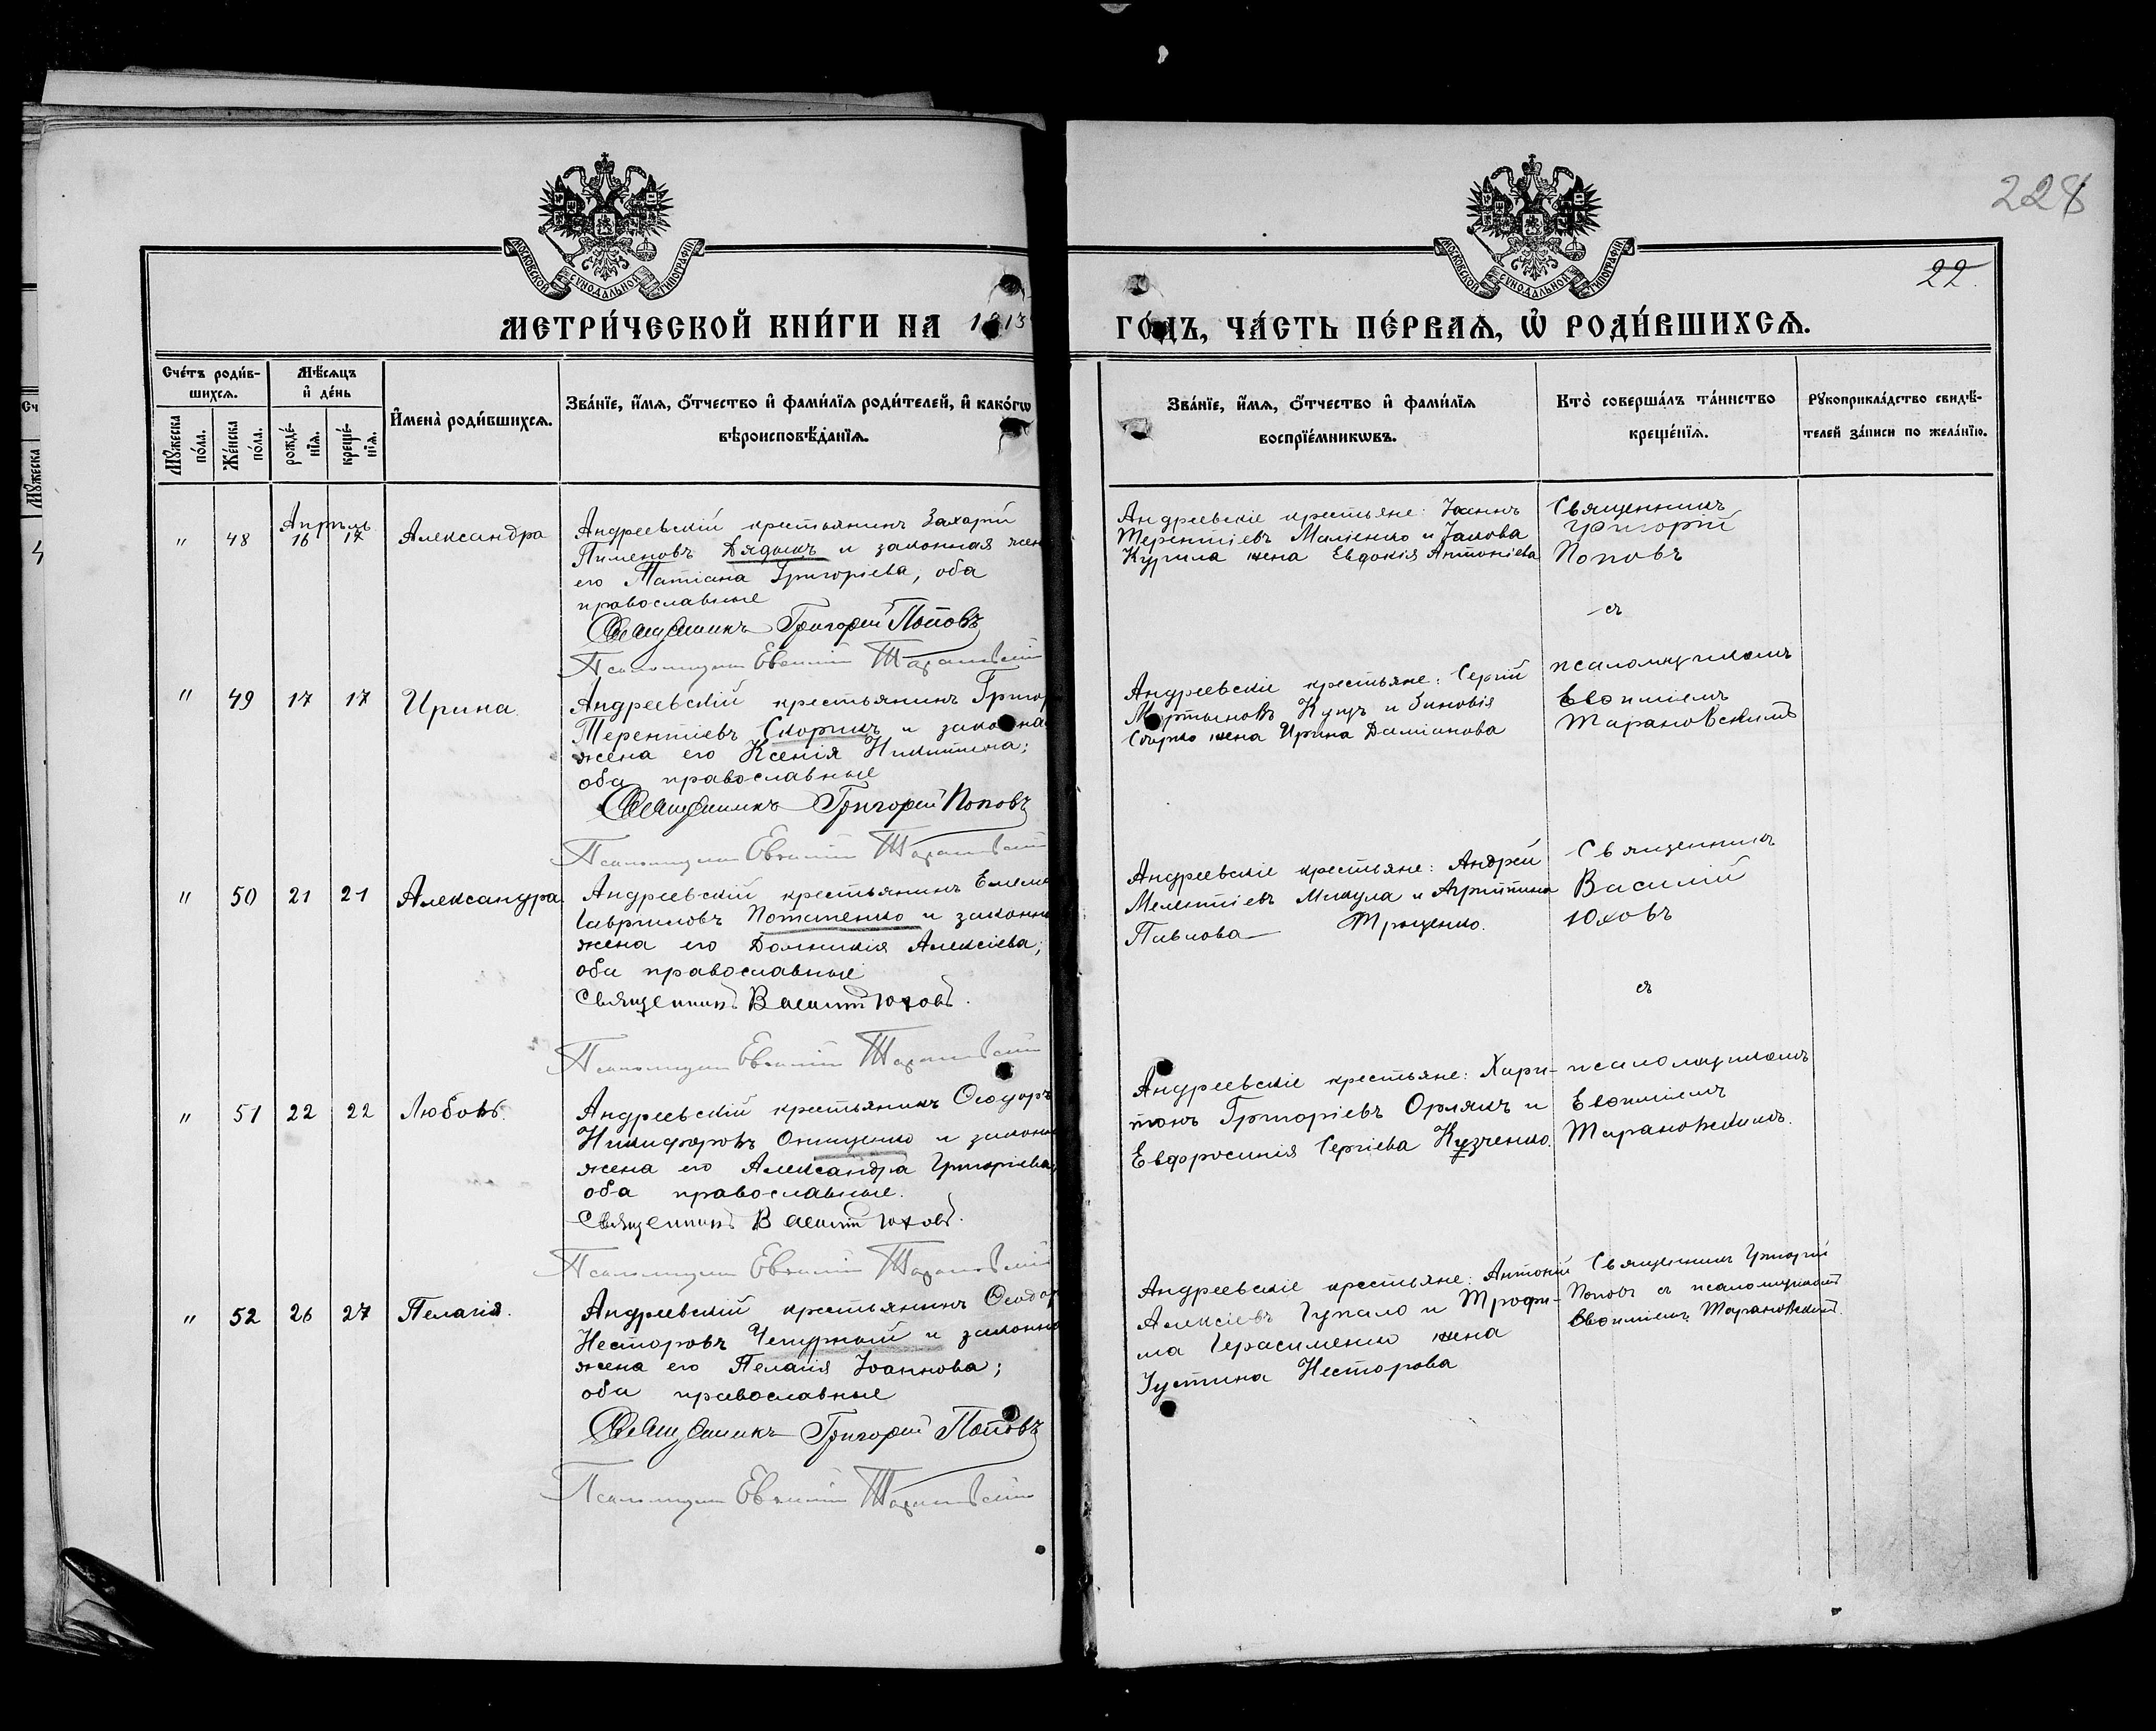 228
22.
МОСКОВСКОЙ СѴНОДАЛЬНОЙ ТИПОГРАФІИ
МОСКОВСКОЙ СѴНОДАЛЬНОЙ ТИПОГРАФІИ
МЕТРИ́ЧЕСКОЙ КНИ́ГИ НА 1913
ГО́ДЪ, ЧА́СТЬ ПЕ́РВАѦ, Ѡ҆ РОДИ́ВШИХСѦ.
Сче́тъ роди́в-
шихсѧ.
Мѣ́сѧцъ
и҆ де́нь
Мꙋ́жеска
по́ла.
Же́нска
по́ла.
рожде́-
нїѧ.
креще́-
нїѧ.
И҆мена̀ роди́вшихсѧ.
Зва́нїе, и҆́мѧ, ѻ҆́тчество и҆ фами́лїѧ роди́телей, и҆ како́гѡ
вѣроисповѣ́данїѧ.
Зва́нїе, и҆́мѧ, ѻ҆́тчество и҆ фами́лїѧ
воспрїе́мникѡвъ.
Кто̀ соверша́лъ та́инство
креще́нїѧ.
Рꙋкоприкла́дство свидѣ́-
телей за́писи по жела́нїю.
Апрѣль
" 48 16 17 Александра
Андреевскій крестьянинъ Захарій
Пименовъ Дядыкъ и законная жен
его Татіана Григоріева, оба
православные
Священникъ Григорій Поповъ
Псаломщикъ Евѳимій Тарановскій
Андреевскіе крестьяне: Іоаннъ
Терентіевъ Маліенко и Іакова
Курила жена Евдокія Антоніева
Священникъ
Григорій
Поповъ
съ
" 49 17 17 Ирина
Андреевскій крестьянинъ Григор
Терентіевъ Скорикъ и законна
жена его Ксенія Никитина;
оба православные
Священникъ Григорій Поповъ
Псаломщикъ Евѳимій Тарановскій
Андреевскіе крестьяне: Сергій
Мартыновъ Куцъ и Зиновія
жена Ирина Даміанова
псаломщикомъ
Евѳиміемъ
Тарановскимъ
" 50 21 21 Александра
Андреевскій крестьянинъ Емелі
Гавриловъ Потапенко и законна
жена его Домникія Алексіева;
оба православные
Священникъ Василій Юховъ.
Псаломщикъ Евѳимій Тарановскій
Андреевскіе крестьяне: Андрей
Мелетіевъ Микула и Агриппина
Павлова Троценко.
Священникъ
Василій
Юховъ
съ
" 51 22 22 Любовь
Андреевскій крестьянинъ Ѳеодоръ
Никифоровъ Онищенко и законна
жена его Александра Григоріева,
оба православные.
Священникъ Василій Юховъ.
Псаломщикъ Евѳимій Тарановскій
Андреевскіе крестьяне: Хари-
тонъ Григоріевъ Орлякъ и
Евфросинія Сергіева Кузченко.
псаломщикомъ
Евѳиміемъ
Тарановскимъ.
" 52 26 27 Пелагія.
Андреевскій крестьянинъ Ѳеодор
Несторовъ Чепурный и законна
жена его Пелагія Іоаннова;
оба православные
Священникъ Григорій Поповъ
Псаломщикъ Евѳимій Тарановскій
Андреевскіе крестьяне: Антоній
Алексіевъ Гупало и Трофи-
ма Герасименко жена
Іустина Несторова
Священникъ Григорій
Поповъ съ псаломщикомъ
Евѳиміемъ Тарановскимъ.